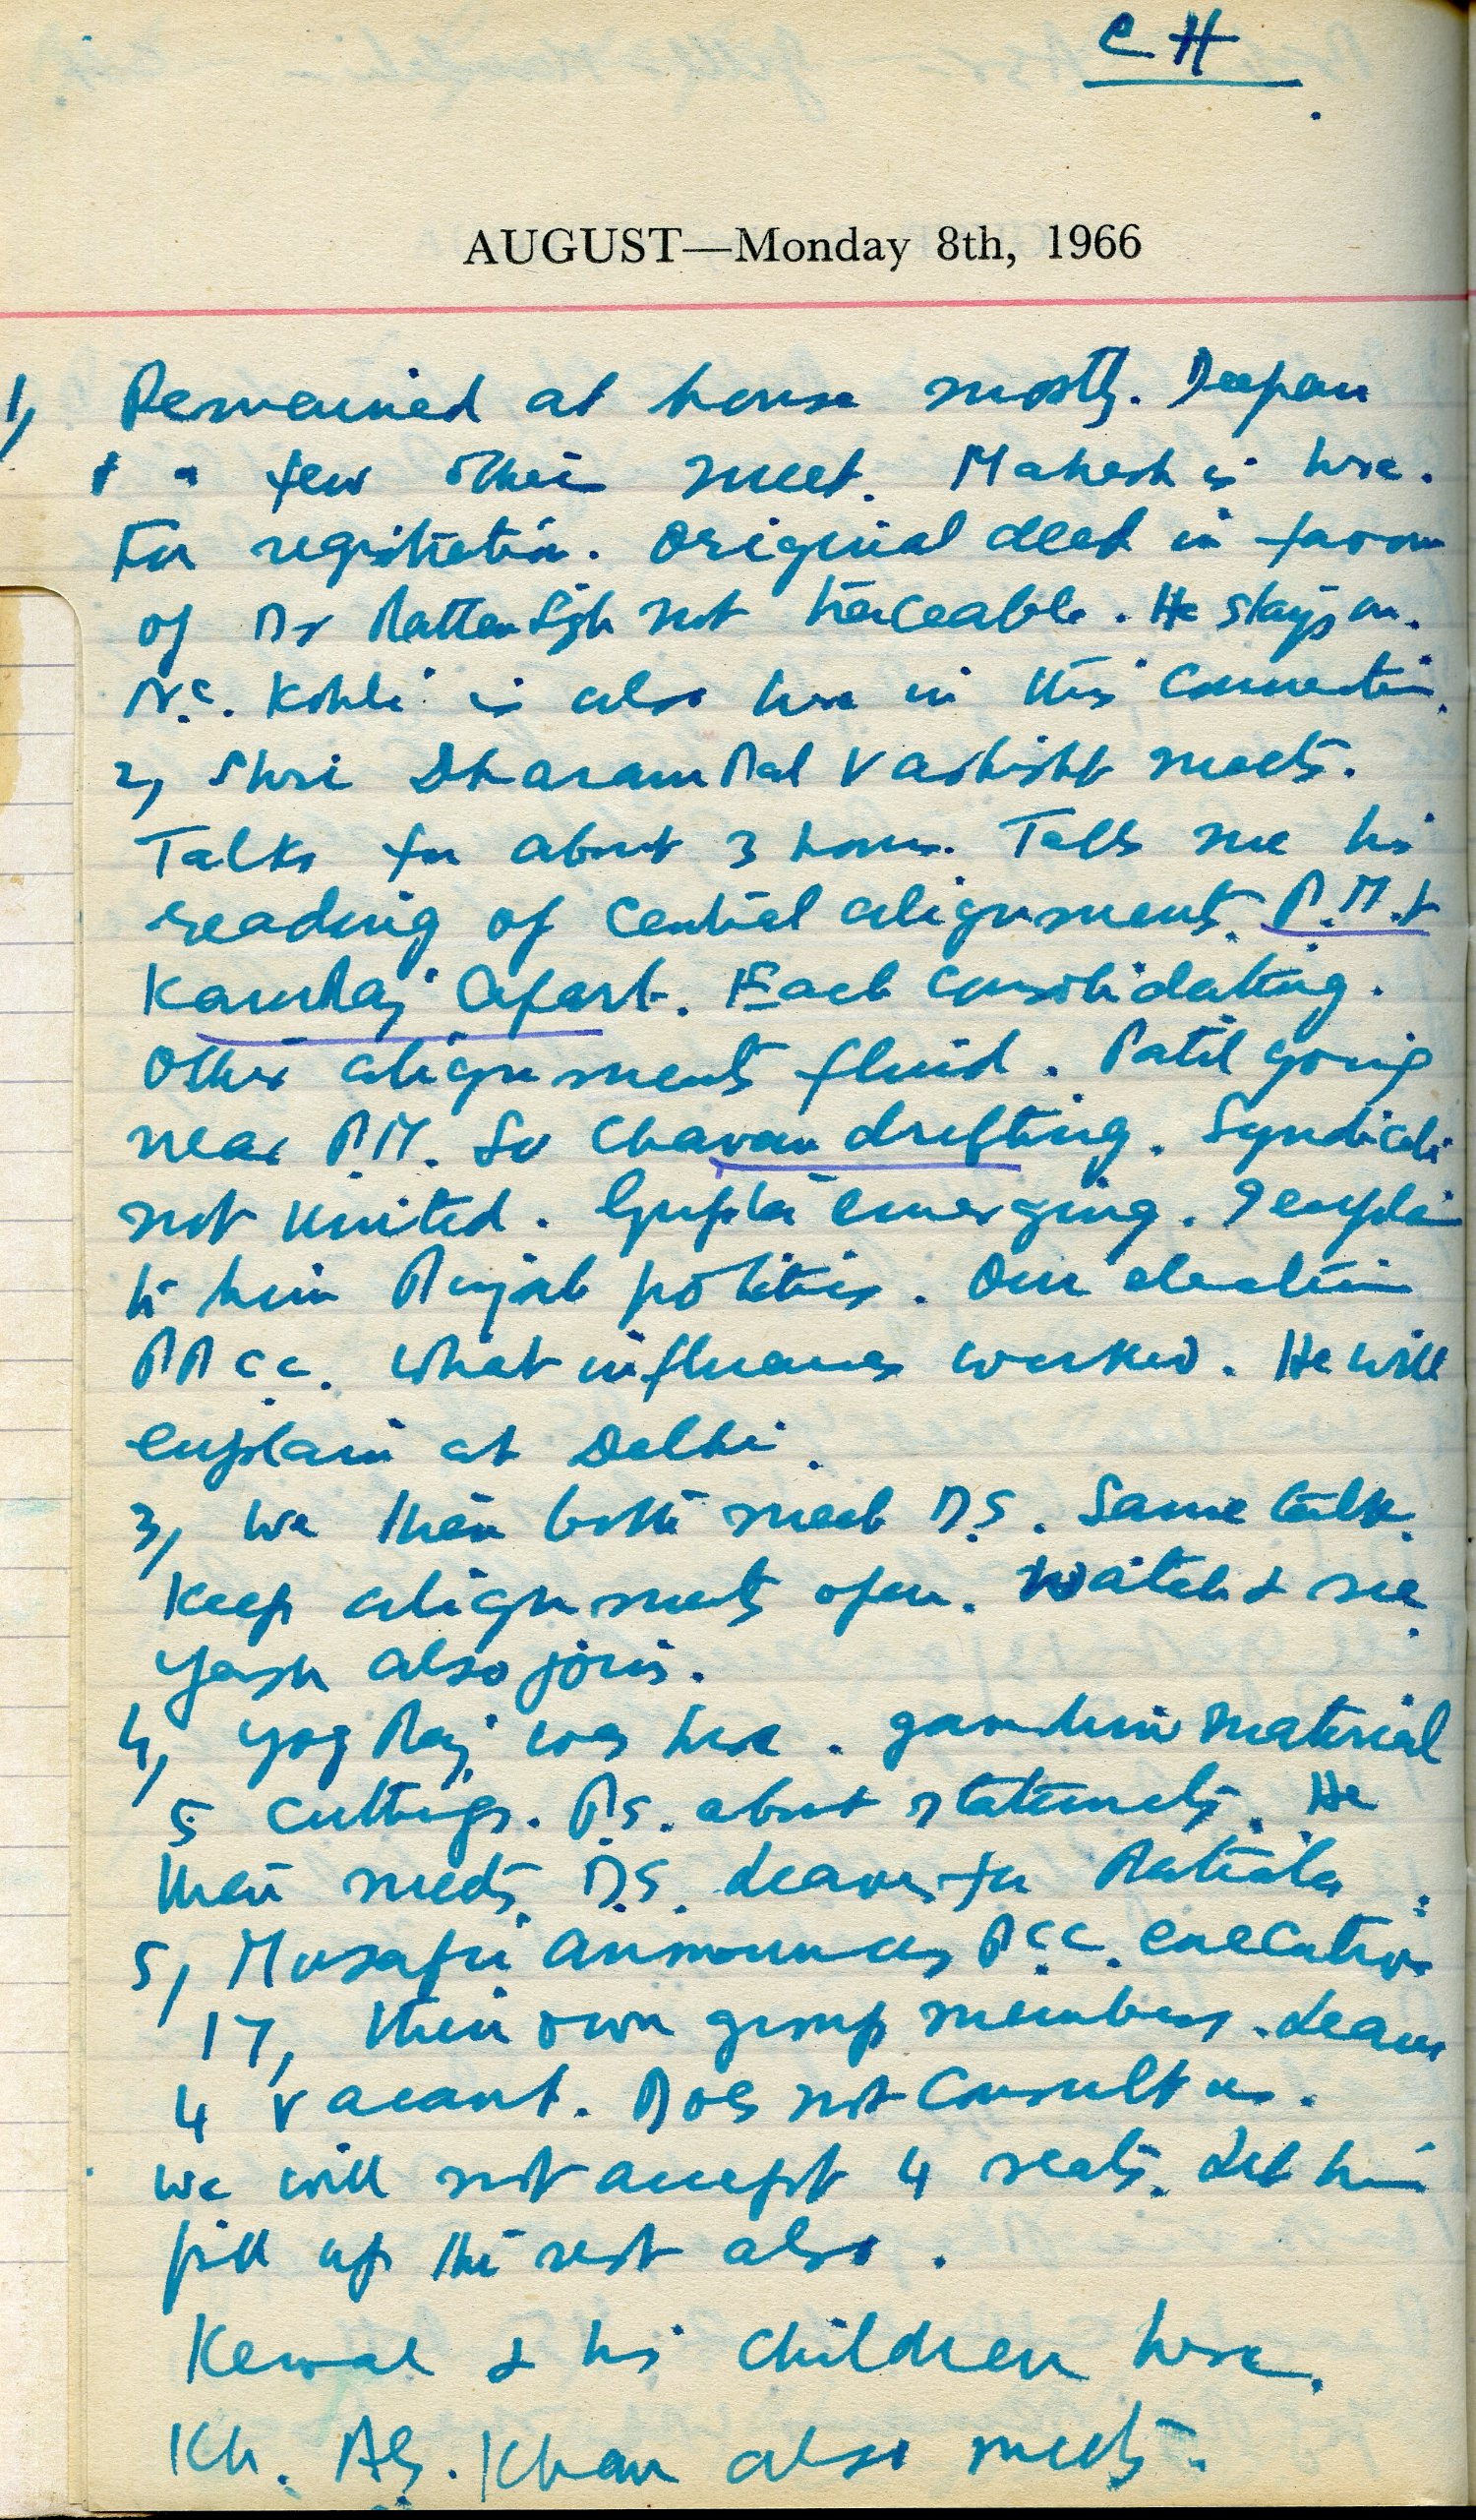 C H
AUGUST—Monday 8th, 1966
1, Remained at house mostly. Deepan
& a few others meet. Mahesh is here.
For registration. Original deed in favour
of Dr Rattan Sgh not traceable. He stays on.
N.C. Kohli is also here in this connection.
2, Shri Dharam Pal Vashisht meets.
Talks for about 3 hours. Tells me his
reading of Central alignments. P.M. &
KamRaj apart. Each consolidating.
Other alignments fluid. Patil going
near P.M. So Chavan drifting. Syndicate
not united. Gupta emerging. I explain
to him Punjab politics. Our election
PPCC. What influences worked. He will
explain at Delhi.
3, We then both meet D.S. Same talk.
Keep alignments open. Watch & see.
Yash also joins.
4, Yog Raj was here. gave him material
5 cuttings. P.S. about statements. He
then meets D.S. Leaves for Patiala.
5, Musafir announces PCC. executive
17, their own group members. Leaves
4 vacant. Does not consult us.
We will not accept 4 seats. Let him
fill up the rest also.
Kewal & his children here.
Kh. Khan also meets.